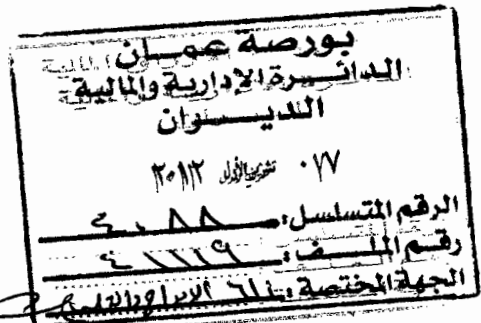 بورصة عمان
الدائرة الإدارية والمالية
الديوان
٠٧٧ تشرين الأول ٢٠١٢
الرقم المتسلسل: ٤٠٨٨
رقم الملف: ٤١١١٩
الجهة المختصة: الإدراج